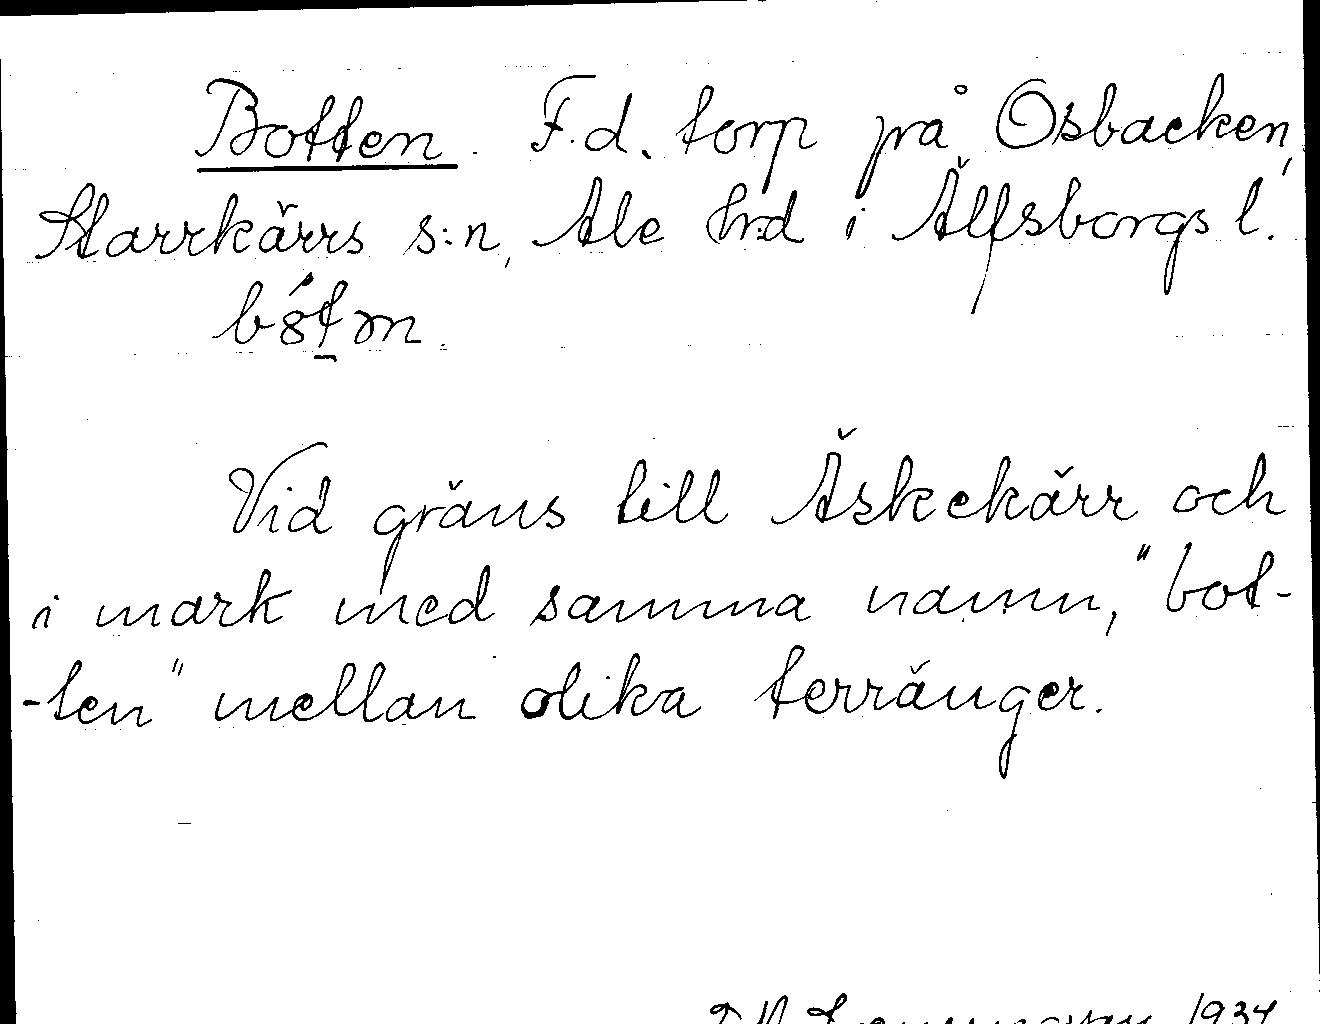 Botten. F.d. torp på Osbacken,
Starrkärrs s:n, Ale hrd i Älfsborgs l.
Vid gräns till Äskekärr och
i mark med samma namn, "bot-
-ten" mellan olika terränger.
1934